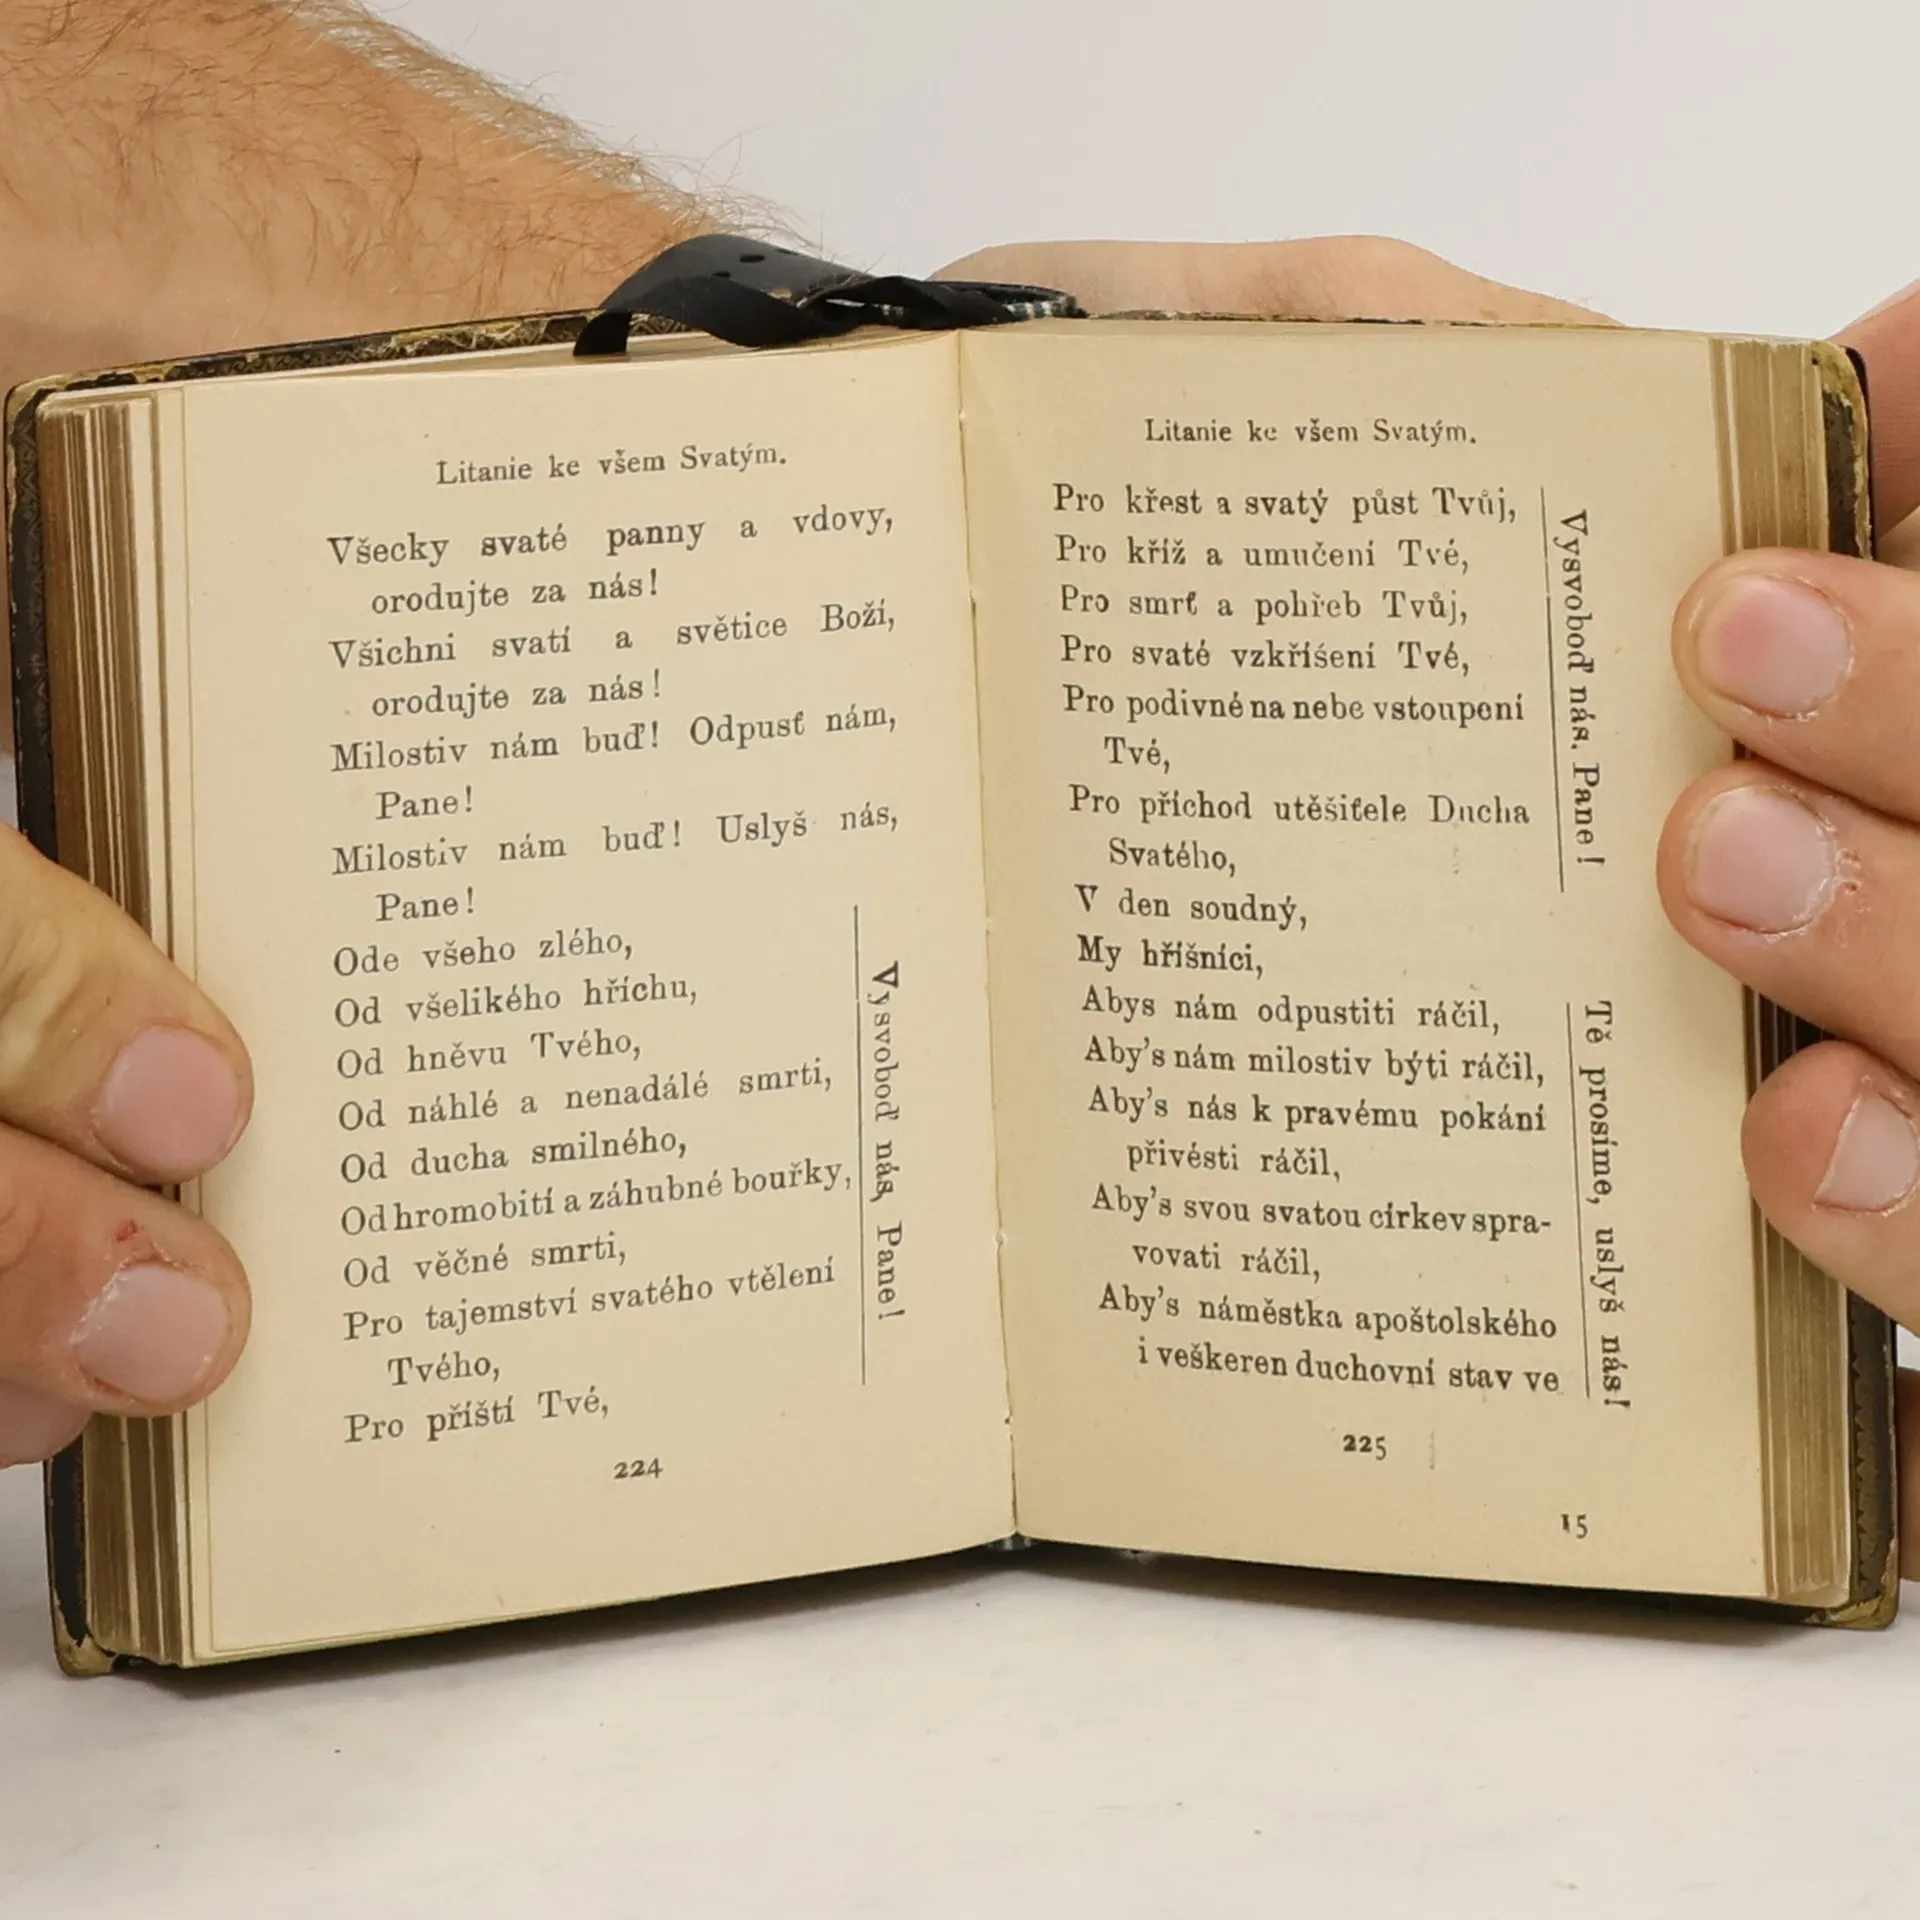 Litanie ke všem Svatým.
Všecky svaté panny a vdovy,
orodujte za nás!
Všichni svatí a světice Boží,
orodujte za nás!
Milostiv nám buď! Odpusť nám,
Pane!
Milostiv nám buď! Uslyš nás,
Pane!
Ode všeho zlého,
Od všelikého hříchu,
Od hněvu Tvého,
Od náhlé a nenadálé smrti,
Od ducha smilného,
Od hromobití a záhubné bouřky,
Od věčné smrti,
Pro tajemství svatého vtělení
Tvého,
Pro příští Tvé,
Vysvoboď nás, Pane!
224
Litanie ke všem Svatým.
Pro křest a svatý půst Tvůj,
Pro kříž a umučení Tvé,
Pro smrť a pohřeb Tvůj,
Pro svaté vzkříšení Tvé,
Pro podivné na nebe vstoupení
Tvé,
Pro příchod utěšitele Ducha
Svatého,
V den soudný,
Vysvoboď nás. Pane!
My hříšníci,
Abys nám odpustiti ráčil,
Aby's nám milostiv býti ráčil,
Aby's nás k pravému pokání
přivésti ráčil,
Aby's svou svatou církev spra-
vovati ráčil,
Aby's náměstka apoštolského
i veškeren duchovní stav ve
Tě prosíme, uslyš nás!
225
15